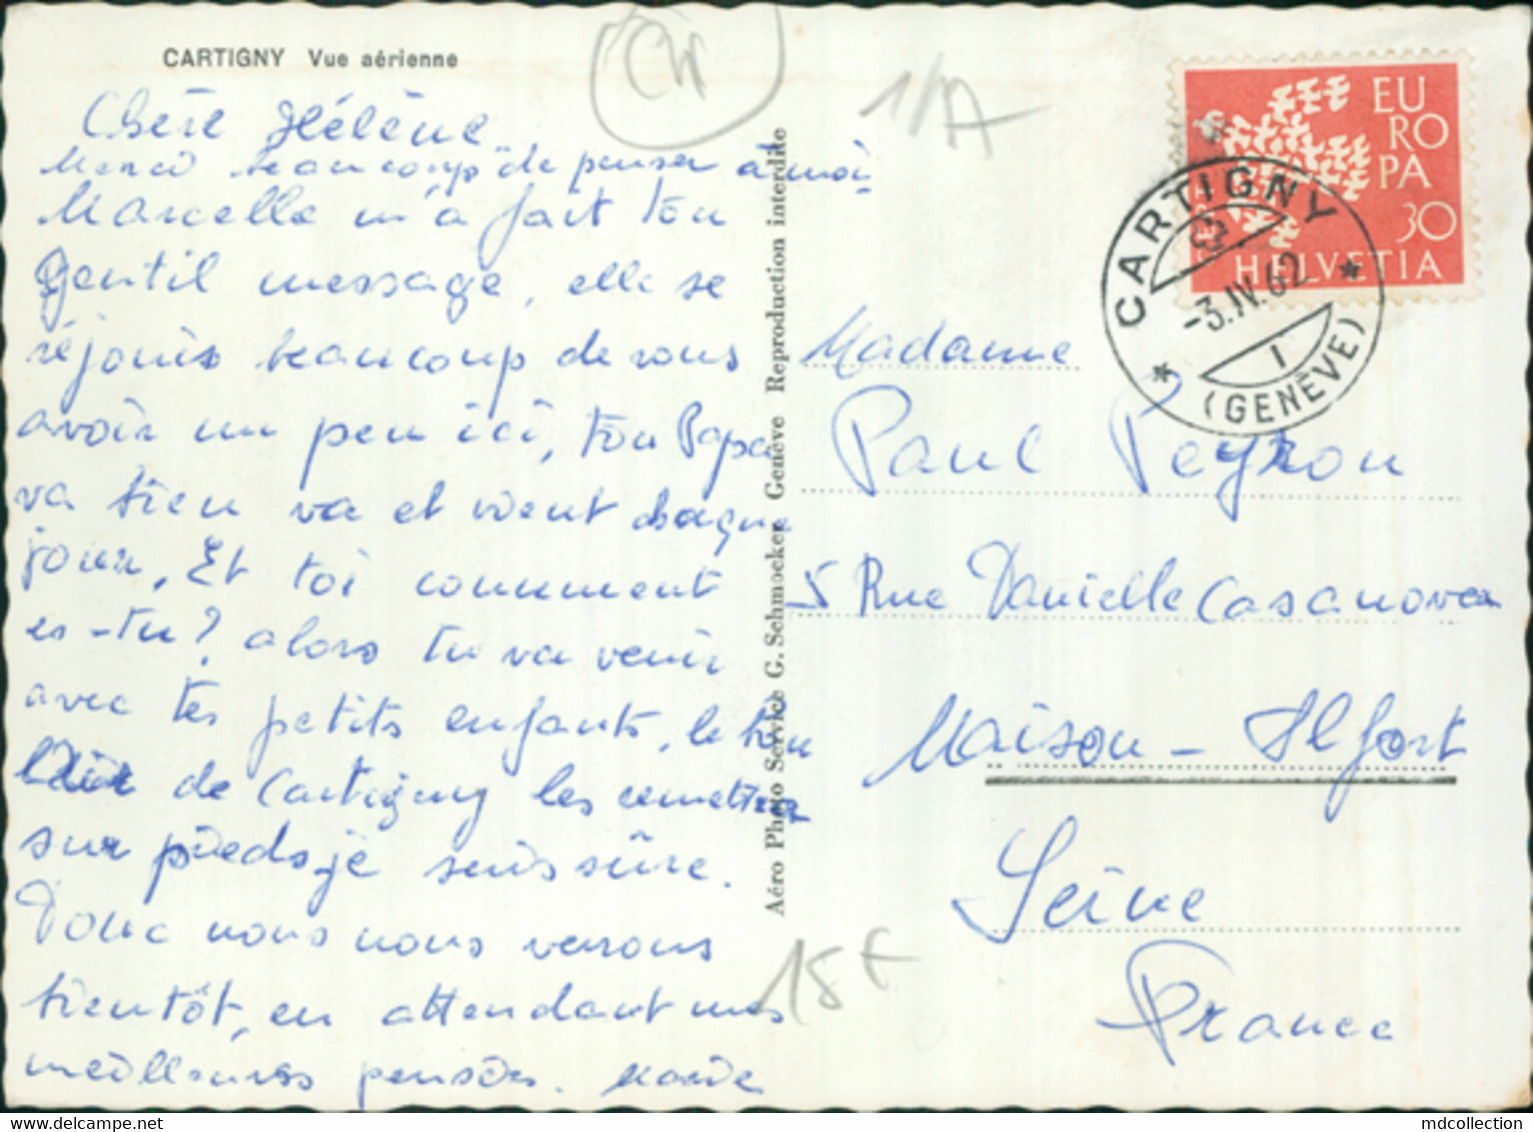 CARTIGNY Vue aérienne
Chère Hélène
Merci beaucoup de penser à moi
Marcelle m'a fait ton
gentil message, elle se
réjouis beaucoup de vous
avoir un peu ici, ton Papa
va bien va et vient chaque
jour. Et toi comment
es-tu? alors tu va venir
avec tes petits enfants, le bon
air de Cartigny les remettra
sur pieds je suis sûre.
Donc nous nous verrons
bientôt, en attendant mes
meilleures pensées.
Aéro Photo Service G. Schmocker Genève Reproduction interdite
1/A
15 F
EU
RO
PA
30
HELVETIA
CARTIGNY
-3.IV.62
1
(GENÈVE)
Madame
Paul Peyron
5 Rue Danielle Casanova
Maison-Alfort
Seine
France
mdcollection
www.delcampe.net